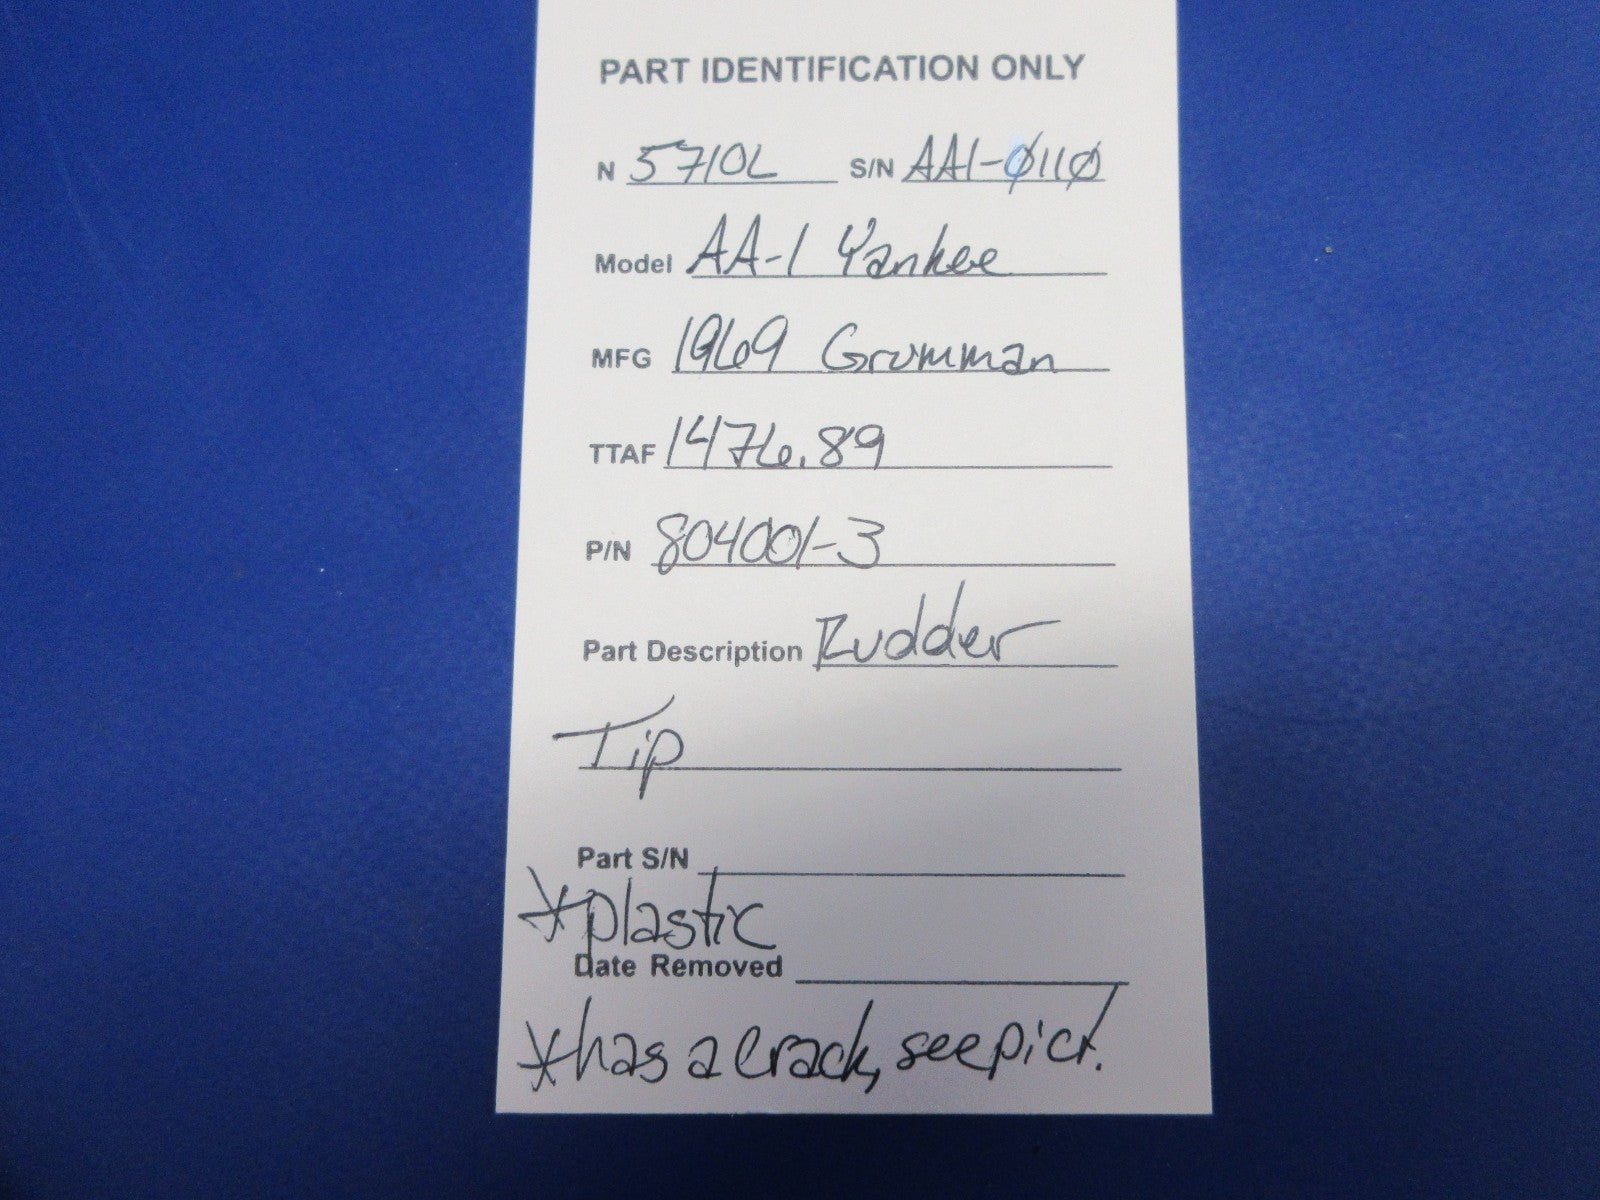 PART IDENTIFICATION ONLY
N 5710L S/N AA1-0110
Model AA-1 Yankee
MFG 1969 Grumman
TTAF 1476.89
P/N 804001-3
Part Description Rudder
Tip
Part S/N
*plastic
Date Removed
*has a crack, see pict.